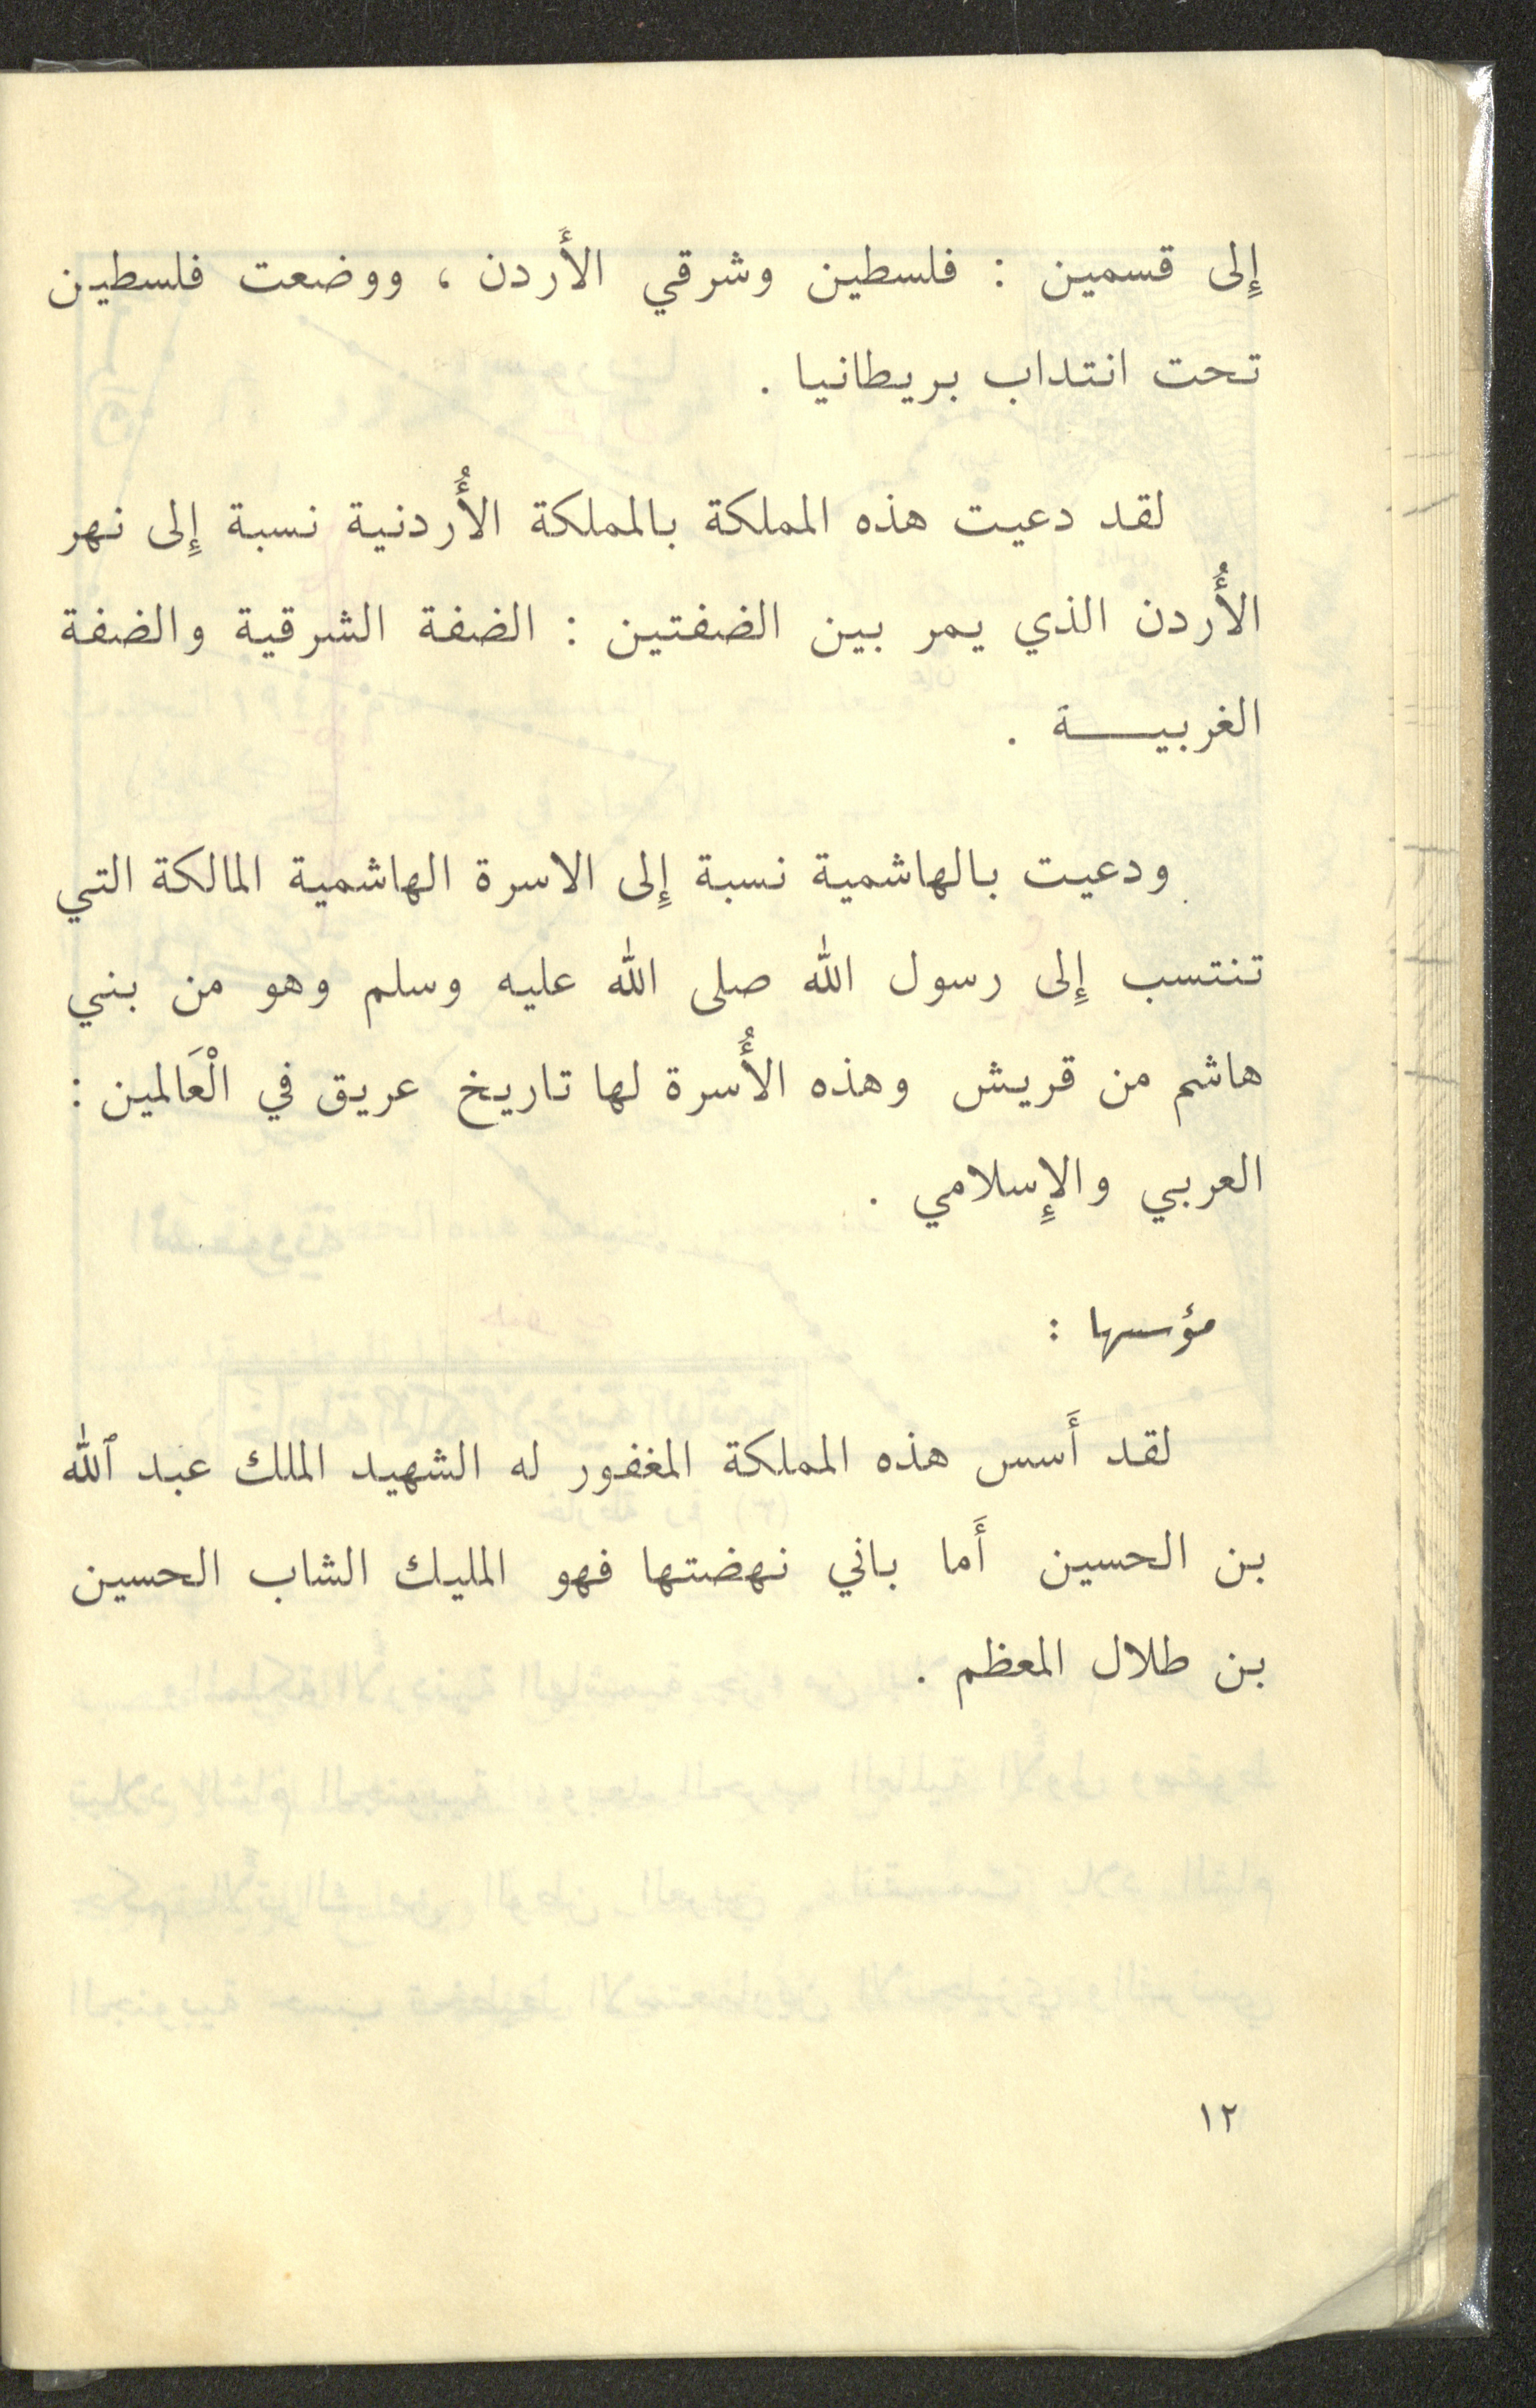 إِلى قسمين : فلسطين وشرقي الأَردن ، ووضعت فلسطين
تحت انتداب بريطانيا .
لقد دعيت هذه المملكة بالمملكة الأُردنية نسبة إِلى نهر
الأُردن الذي يمر بين الضفتين : الضفة الشرقية والضفة
الغربيـــــة .
ودعيت بالهاشمية نسبة إِلى الاسرة الهاشمية المالكة التي
تنتسب إِلى رسول الله صلى الله عليه وسلم وهو من بني
هاشم من قريش وهذه الأُسرة لها تاريخ عريق في الْعَالمين :
العربي والإِسلامي .
مؤسسها :
لقد أَسس هذه المملكة المغفور له الشهيد الملك عبد ٱلله
بن الحسين أَما باني نهضتها فهو المليك الشاب الحسين
بن طلال المعظم .
١٢